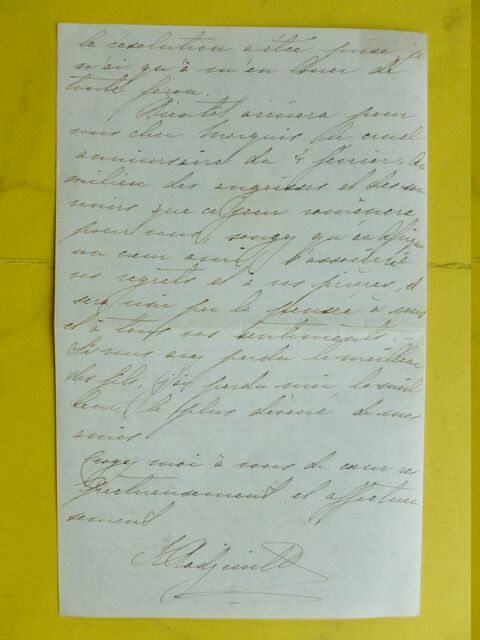 la résolution a été prise, je
n'ai qu'à m'en louer de
toute façon.
Bientôt arrivera pour
vous cher Marquis le cruel
anniversaire du 4 février. Au
milieu des angoisses et des sou
venirs que ce jour ramènera
pour vous, songez qu'en
un cœur ami s'associera
vos regrets et à vos prières, et
sera uni par la pensée à vous
et à tous vos sentiments.
Si vous avez perdu le meilleur
des fils, j'ai perdu moi le meil
leur le plus dévoué de mes
amis
Croyez moi à vous de cœur res
pectueusement et affectueu
sement